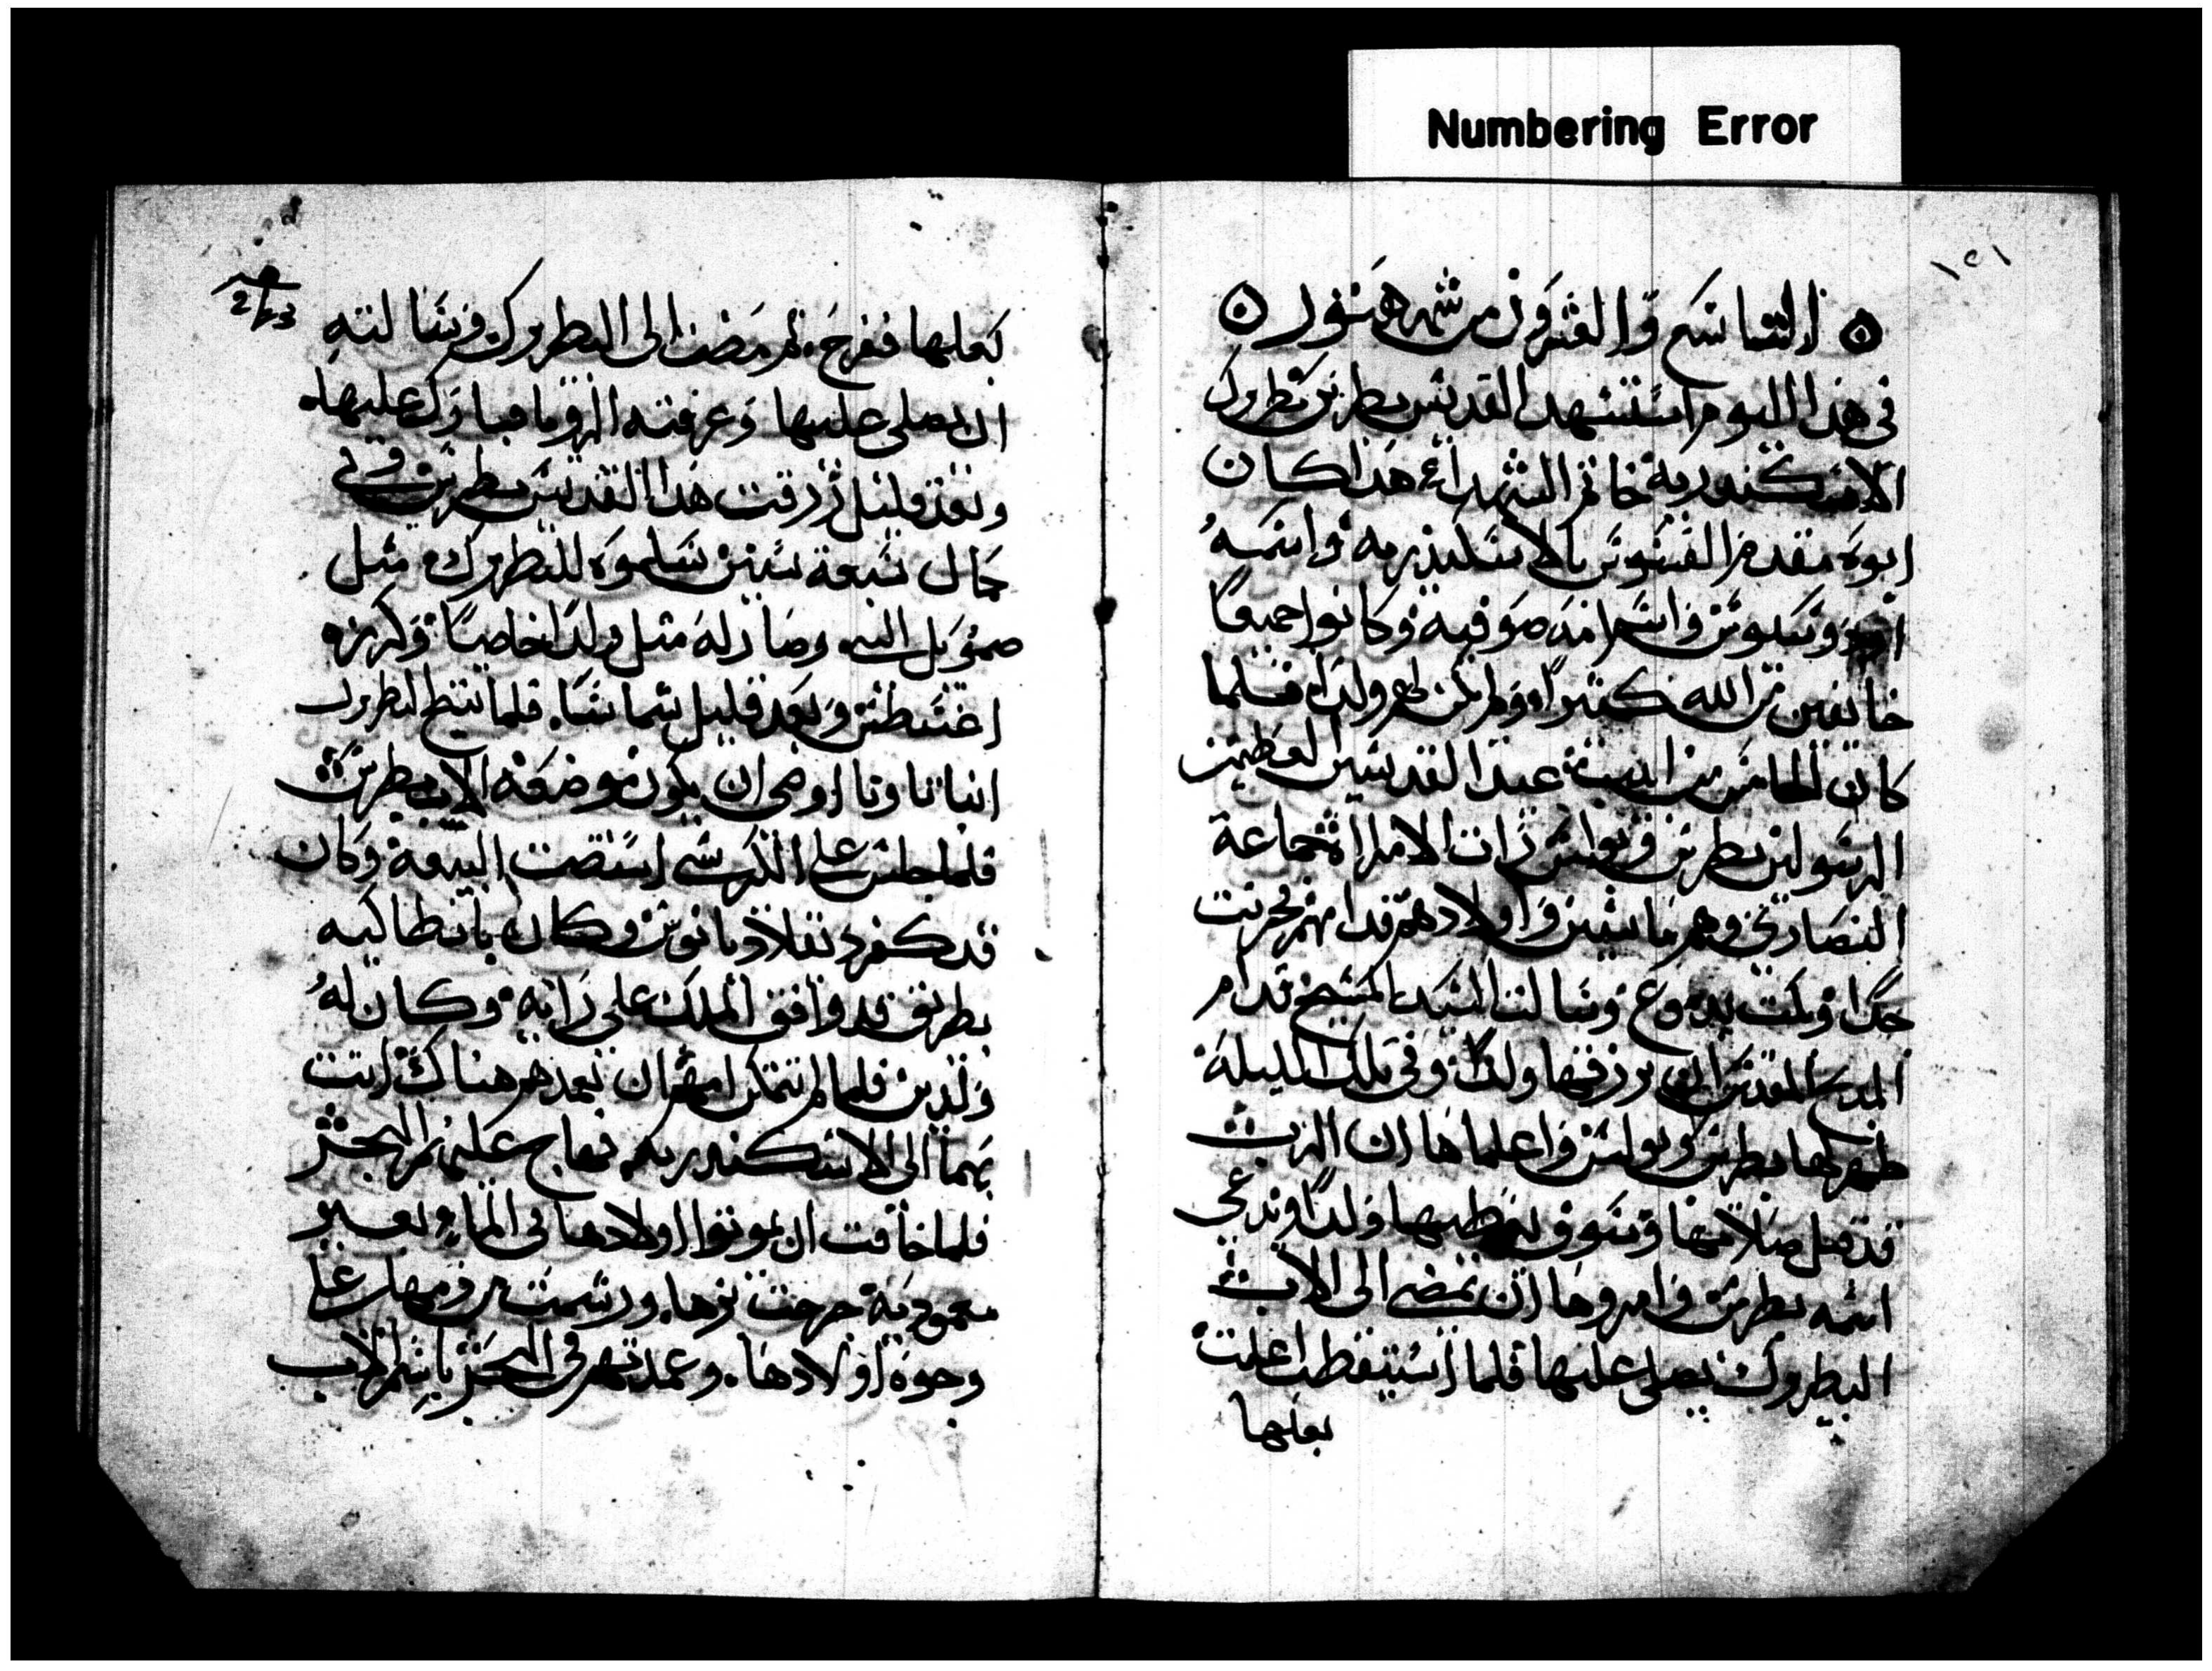 Numbering Error
١٥١
التاسع والعشرون من شهر هتور
في هذا اليوم استشهد القديس بطرس بطريرك
الاسكندرية خاتم الشهداء هذا كان
ابوه مقدم القسوس بالاسكندرية واسمه
وسيوس واسم امه صوفية وكانوا جميعا
خايفين من الله كتيرا ولم يكن لهم ولد فلما
كان الخامس من ابيب عيد القديسين العظيمين
الرسولين بطرس وبولس رات الامراة جماعة
النصاري وهم ماشيين واولادهم قدامهم فحزنت
جدا وبكت بدموع وسالت السيد المسيح قدام
المدبح المقدس ان يرزقها ولدا وفي تلك الليلة
ظهر لها بطرس وبولس واعلماها ان الرب
قد قبل صلاتها وسوف يعطيها ولدا ويدعي
اسمه بطرس وامروها ان تمضي الى الاب
البطروك يصلي عليها فلما استيقظت اعلمت
بعلها
2/23
بعلها ففرح. ثم مضت الى البطروك وسالته
ان يصلي عليها وعرفته الرويا فبارك عليها.
وبعد قليل رزقت هذا القديس بطرس وفي
كمال سبعة سنين سلموه للبطروك مثل
صموييل النبي وصار له مثل ولدا خاصا وكرزه
اغنسطس وبعد قليل شماسا. فلما تنيح البطروك
انبا تاونا اوصى ان يكون موضعه الاب بطرس
فلما جلس على الكرسي استضت البيعة وكان
قد كفر دقلاديانوس وكان بانطاكيه
بطريق قد وافق الملك على رايه وكان له
ولدين فلما لم تتمكن امهم ان تعمدهم هناك اتت
بهما الى الاسكندريه فهاج عليهم البحر
فلما خافت ان يموتوا اولادها في الماء بغير
معموديه جرحت بزها. ورشمت من دمها على
وجوه اولادها. وعمدتهم في البحر باسم الاب